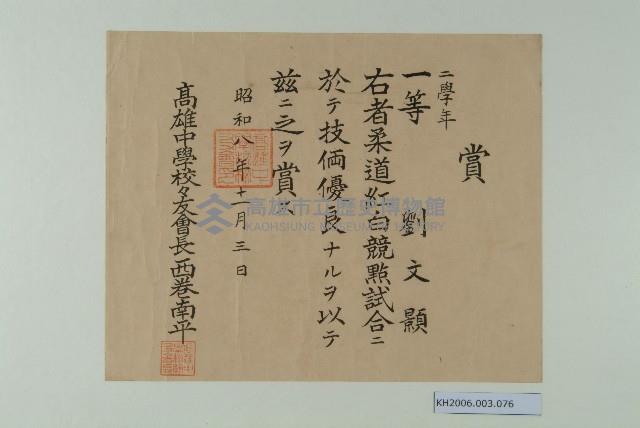 賞
二學年
一等 劉文顯
右者柔道紅白競點試合ニ
於テ技倆優良ナルヲ以テ
茲ニ之ヲ賞ス
昭和八年十一月三日
高雄中學校々友會長西卷南平
高雄市立歷史博物館
KAOHSIUNG MUSEUM OF HISTORY
KH2006.003.076